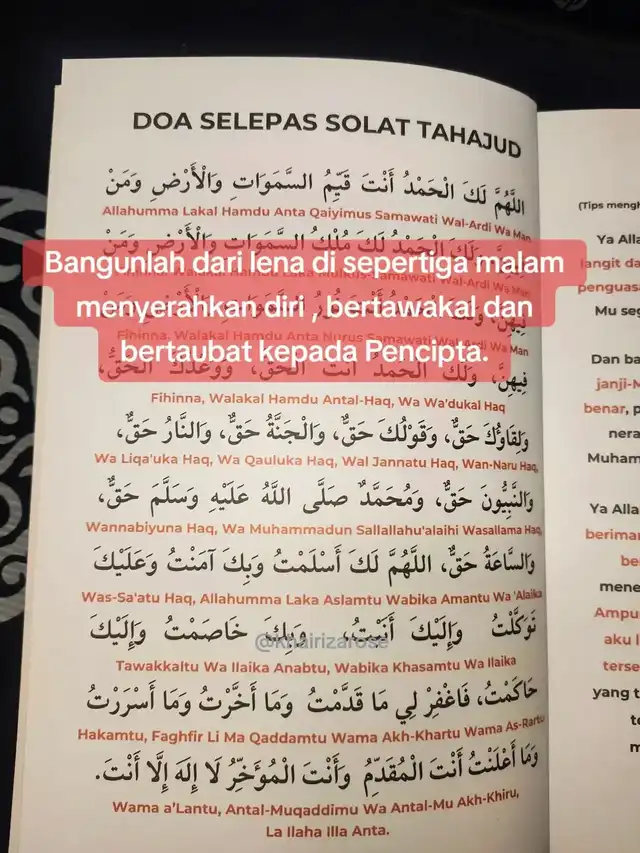 DOA SELEPAS SOLAT TAHAJUD
اللَّهُمَّ لَكَ الْحَمْدُ أَنْتَ قَيِّمُ السَّمَوَاتِ وَالْأَرْضِ وَمَنْ
Allahumma Lakal Hamdu Anta Qaiyimus Samawati Wal-Ardi Wa Man
وَلَكَ الْحَمْدُ لَكَ مُلْكُ السَّمَوَاتِ وَالْأَرْضِ وَمَنْ
Bangunlah dari lena di sepertiga malam
menyerahkan diri , bertawakal dan
bertaubat kepada Pencipta.
Fihinna, Walakal Hamdu Anta Nurus Samawati Wal-Ardi Wa Man
فِيهِنَّ، وَلَكَ الْحَمْدُ أَنْتَ الْحَقُّ، وَوَعْدُكَ الْحَقُّ،
Fihinna, Walakal Hamdu Antal-Haq, Wa Wa'dukal Haq
وَلِقَاؤُكَ حَقٌّ، وَقَوْلُكَ حَقٌّ، وَالْجَنَّةُ حَقٌّ، وَالنَّارُ حَقٌّ،
Wa Liqa'uka Haq, Wa Qauluka Haq, Wal Jannatu Haq, Wan-Naru Haq,
وَالنَّبِيُّونَ حَقٌّ، وَمُحَمَّدٌ صَلَّى اللَّهُ عَلَيْهِ وَسَلَّمَ حَقٌّ،
Wannabiyuna Haq, Wa Muhammadun Sallallahu'alaihi Wasallama Haq,
وَالسَّاعَةُ حَقٌّ، اللَّهُمَّ لَكَ أَسْلَمْتُ وَبِكَ آمَنْتُ وَعَلَيْكَ
Was-Sa'atu Haq, Allahumma Laka Aslamtu Wabika Amantu Wa 'Alaika
تَوَكَّلْتُ وَإِلَيْكَ أَنَبْتُ، وَبِكَ خَاصَمْتُ وَإِلَيْكَ
@khairizarose
Tawakkaltu Wa Ilaika Anabtu, Wabika Khasamtu Wa Ilaika
حَاكَمْتُ، فَاغْفِرْ لِي مَا قَدَّمْتُ وَمَا أَخَّرْتُ وَمَا أَسْرَرْتُ
Hakamtu, Faghfir Li Ma Qaddamtu Wama Akh-Khartu Wama As-Rartu
وَمَا أَعْلَنْتُ أَنْتَ الْمُقَدِّمُ وَأَنْتَ الْمُؤَخِّرُ لَا إِلَهَ إِلَّا أَنْتَ.
Wama a'Lantu, Antal-Muqaddimu Wa Antal-Mu Akh-Khiru,
La Ilaha Illa Anta.
(Tips
Ya
penguasa
Mu
Dan
janji-
benar,
Ya
aku
yang